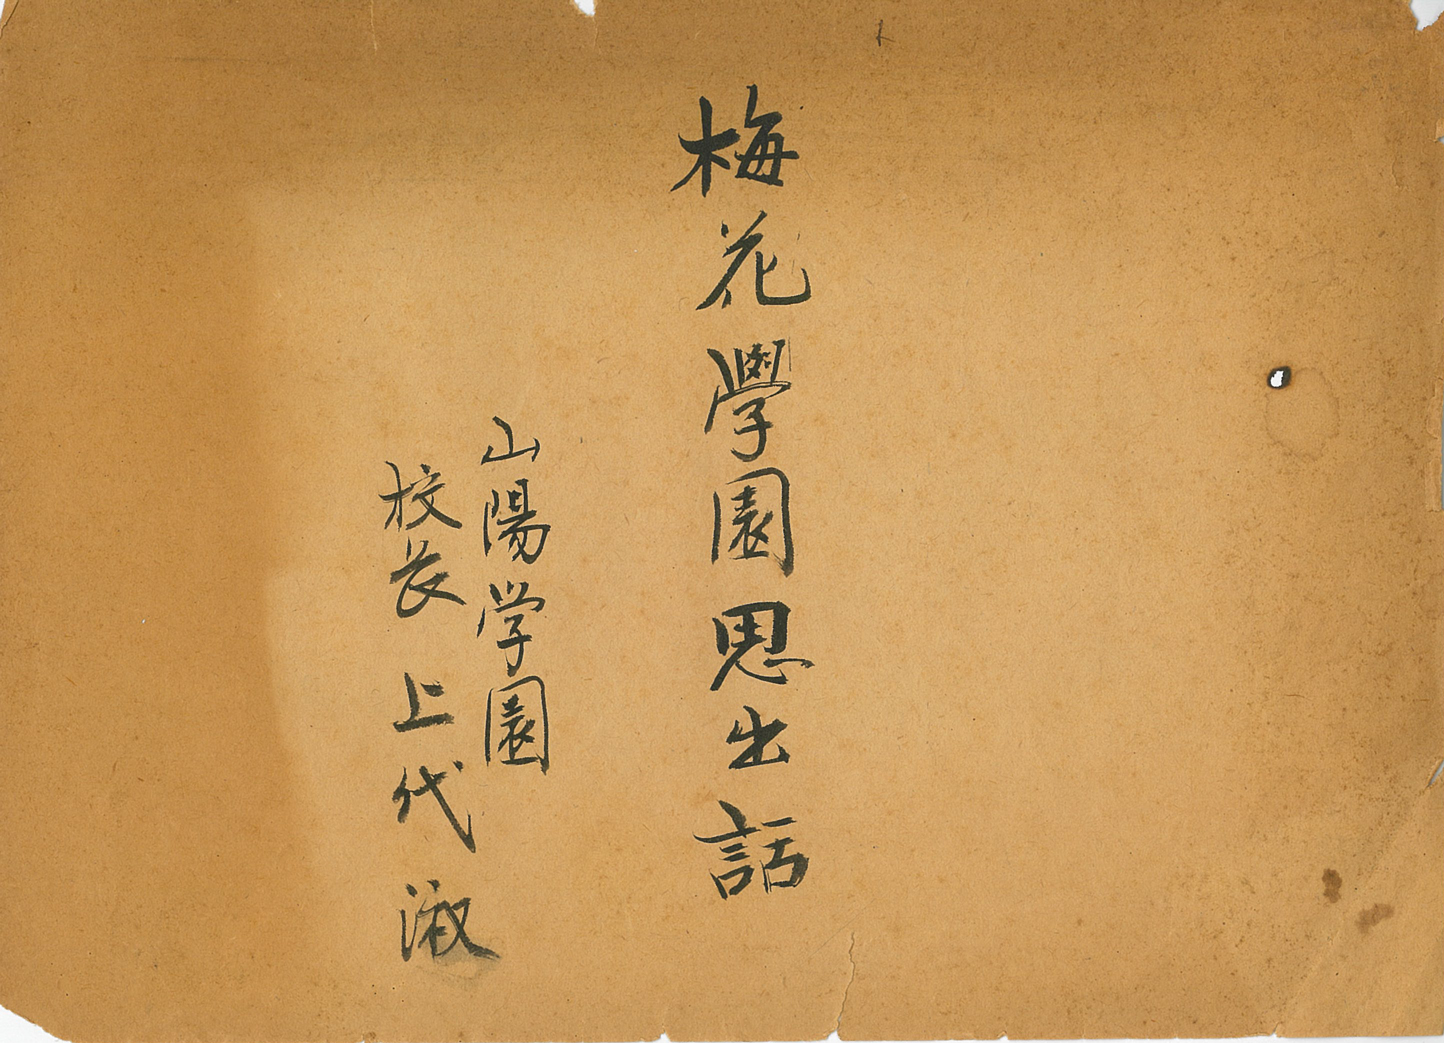 梅花學園思出話
山陽学園
校長 上代淑